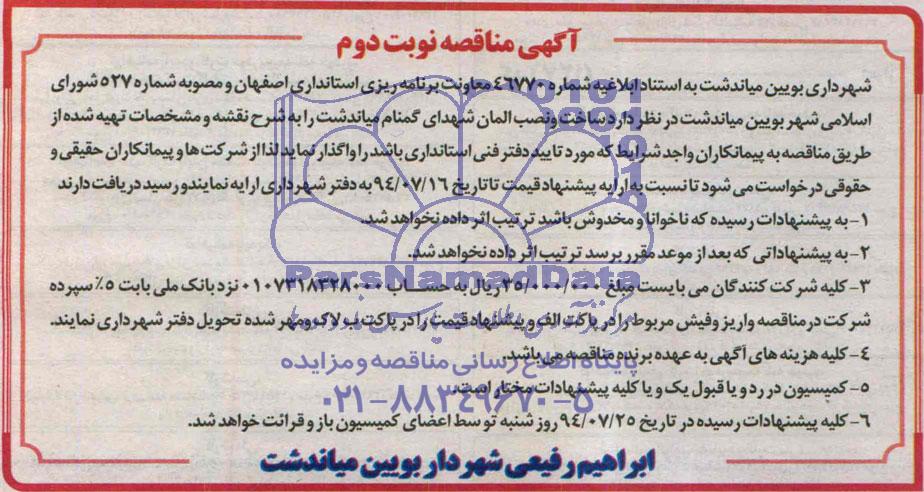 آگهی مناقصه نوبت دوم
شهرداری بویین میاندشت به استناد ابلاغیه شماره ۴۶۷۷۰ معاونت برنامه ریزی استانداری اصفهان و مصوبه شماره ۵۲۷ شورای
اسلامی شهر بویین میاندشت در نظر دارد ساخت ونصب المان شهدای گمنام میاندشت را به شرح نقشه و مشخصات تهیه شده از
طریق مناقصه به پیمانکاران واجد شرایط که مورد تایید دفتر فنی استانداری باشد را واگذار نماید لذا از شرکت ها و پیمانکاران حقیقی و
حقوقی درخواست می شود تا نسبت به ارایه پیشنهاد قیمت تا تاریخ ۹۴/۰۷/۱۶ به دفتر شهرداری ارایه نمایند و رسید دریافت دارند
۱- به پیشنهادات رسیده که ناخوانا و مخدوش باشد ترتیب اثر داده نخواهد شد.
۲- به پیشنهاداتی که بعد از موعد مقرر برسد ترتیب اثر داده نخواهد شد.
ParsNamadData
۳- کلیه شرکت کنندگان می بایست مبلغ ۳۵/۰۰۰/۰۰۰ ریال به حساب ۰۱۰۷۳۱۸۳۲۸۰۰۰ نزد بانک ملی بابت ۵٪ سپرده
شرکت در مناقصه واریز وفیش مربوط را در پاکت الف و پیشنهاد قیمت را در پاکت ب لاک و مهر شده تحویل دفتر شهرداری نمایند.
۴- کلیه هزینه های آگهی به عهده برنده مناقصه می باشد.
پایگاه اطلاع رسانی مناقصه و مزایده
۵- کمیسیون در رد و یا قبول یک و یا کلیه پیشنهادات مختار است.
۰۲۱-۸۸۳۴۹۶۷۰-۵
۶- کلیه پیشنهادات رسیده در تاریخ ۹۴/۰۷/۲۵ روز شنبه توسط اعضای کمیسیون باز و قرائت خواهد شد.
ابراهیم رفیعی شهردار بویین میاندشت